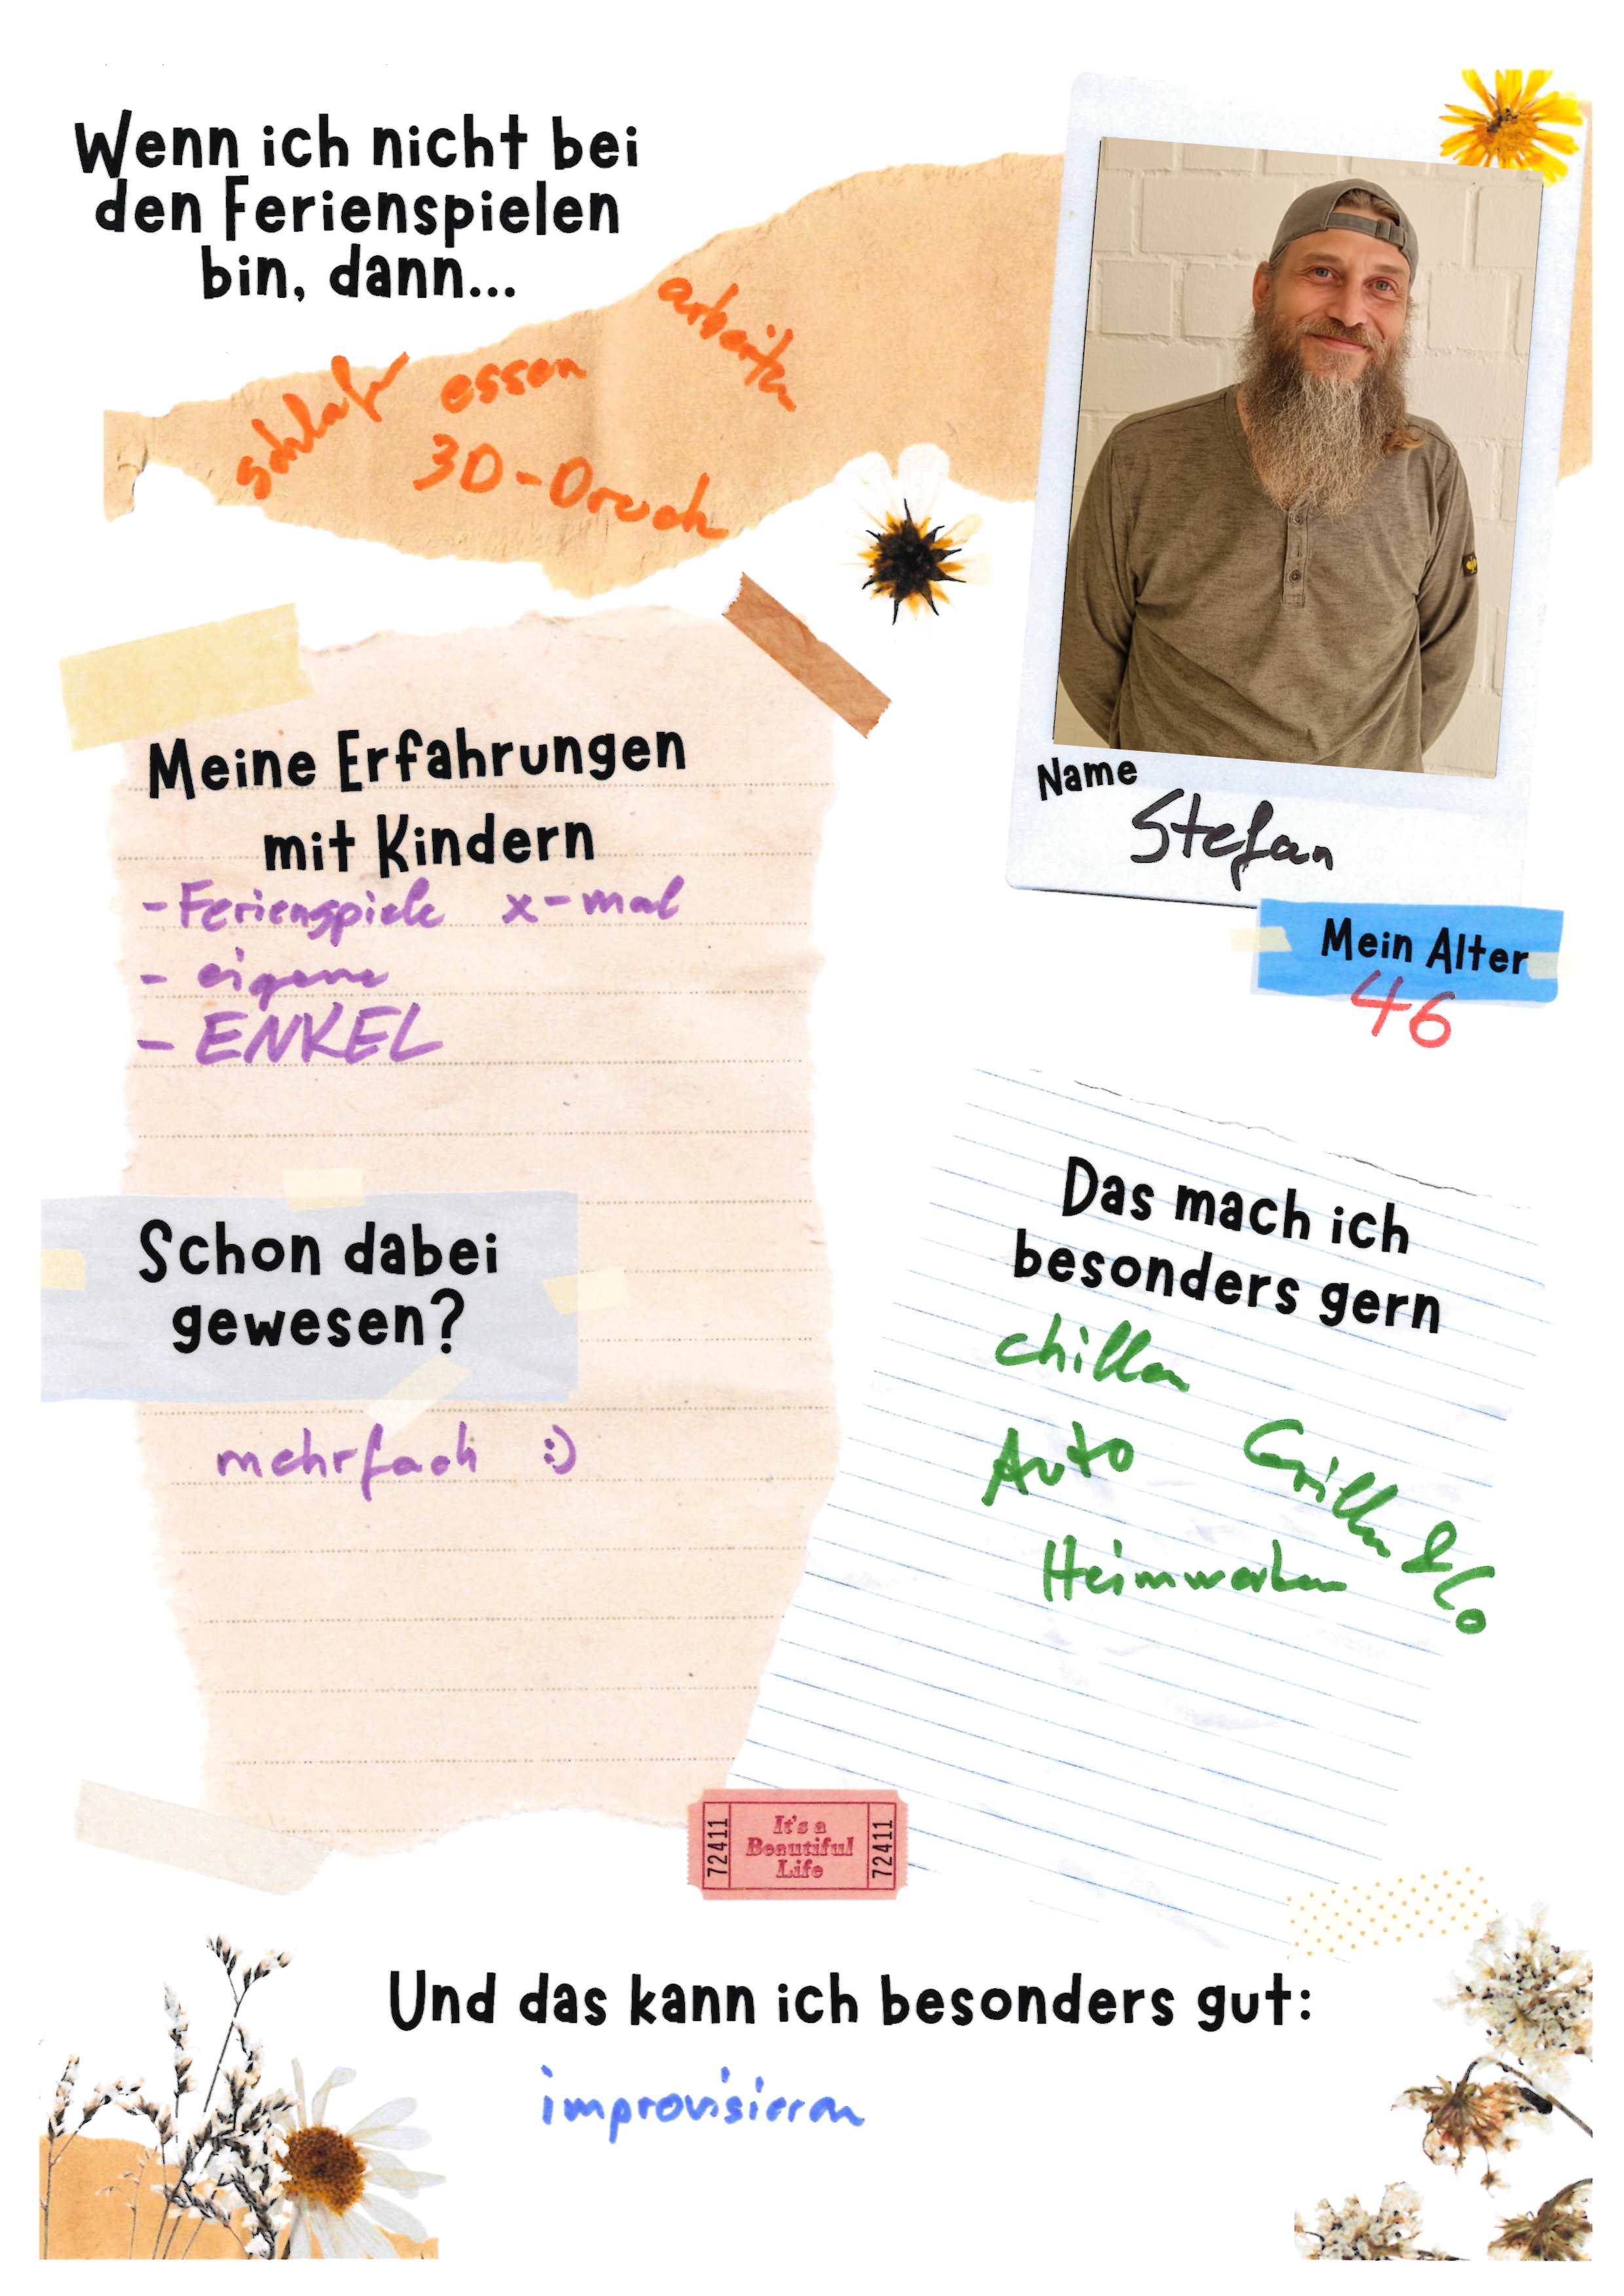 Wenn ich nicht bei
den Ferienspielen
bin, dann...
schlafen essen arbeiten
3D-Druck
Name
Stefan
Mein Alter
46
Meine Erfahrungen
mit Kindern
- Ferienspiele x-mal
- eigene
- ENKEL
Schon dabei
gewesen?
mehrfach :)
Das mach ich
besonders gern
chillen
Auto Grillen & Co
Heimwerken
72411 It's a Beautiful Life 72411
Und das kann ich besonders gut:
improvisieren